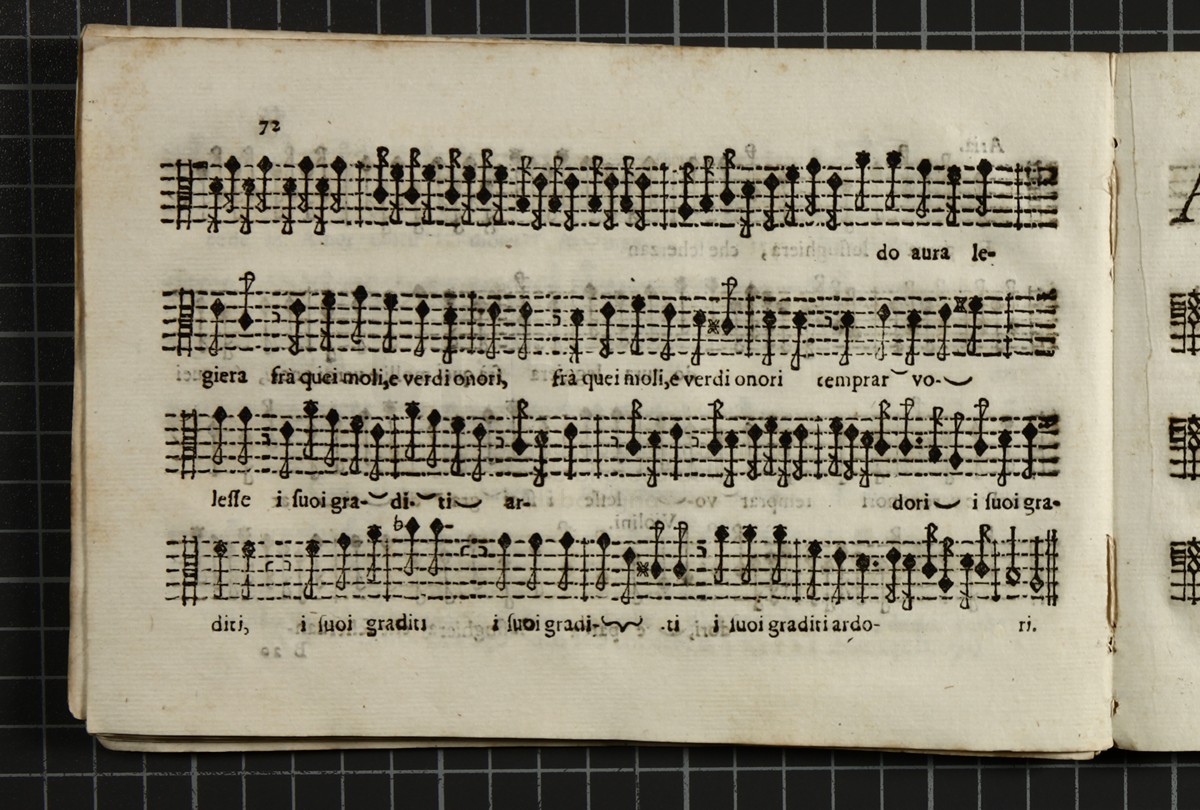 72
do aura le-
giera frà quei moli,e verdi onori, frà quei moli,e verdi onori temprar vo-
leſſe i ſuoi gra- di- ti ar- dori i ſuoi gra-
diti, i ſuoi graditi i ſuoi gradi- ti i ſuoi graditi ardo- ri.